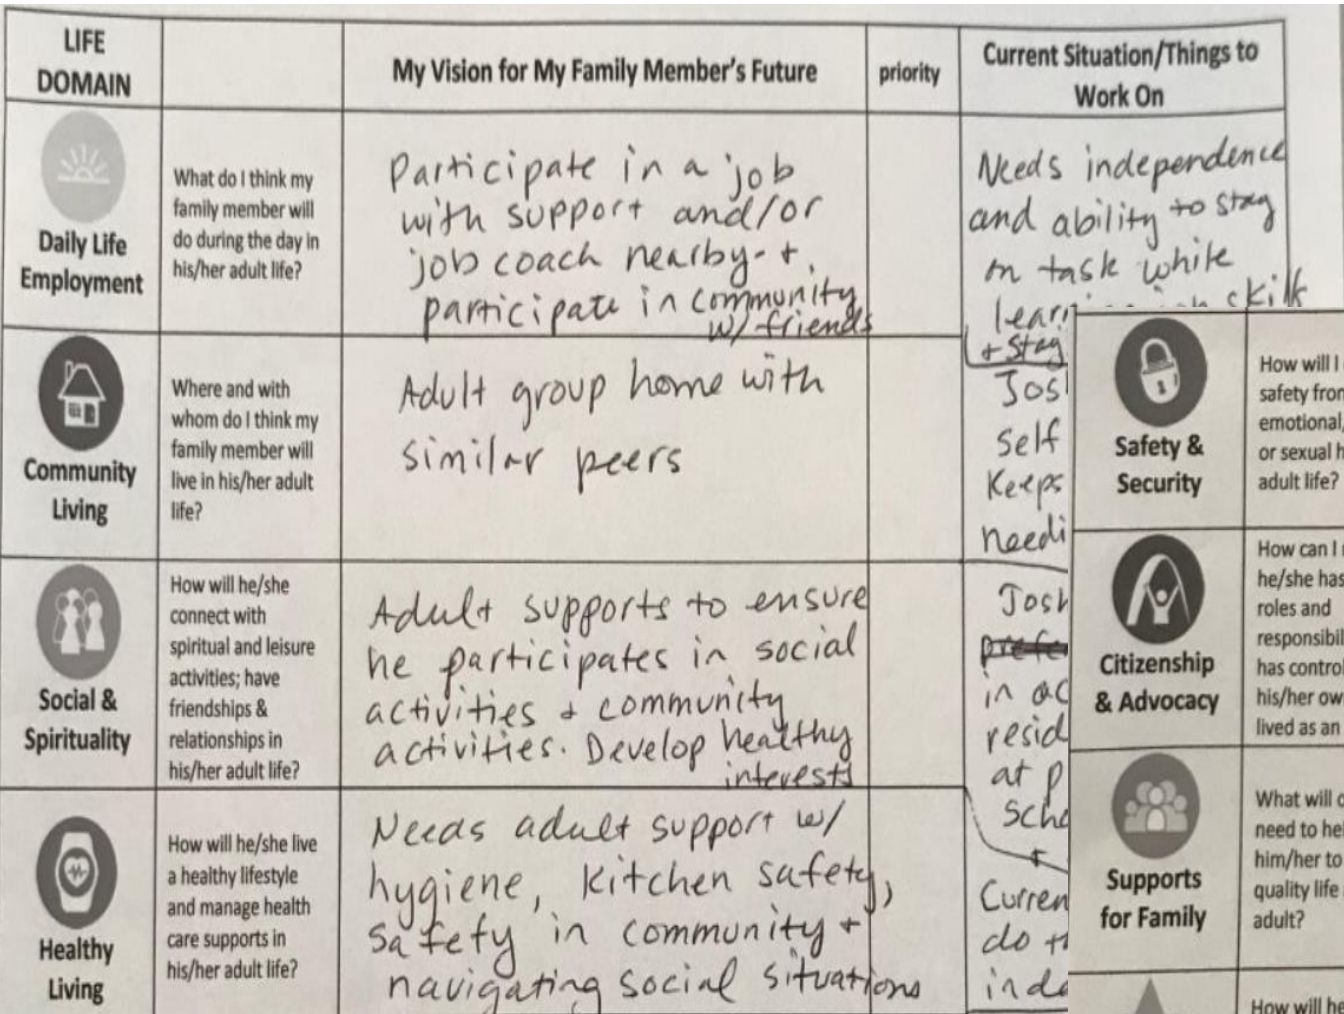 LIFE
DOMAIN
My Vision for My Family Member's Future
priority
Current Situation/Things to
Work On
Daily Life
Employment
What do I think my
family member will
do during the day in
his/her adult life?
Participate in a job
with support and/or
job coach nearby - +
participate in community
w/ friends
Needs independence
and ability to stay
on task while
skills
+ stay
Community
Living
Where and with
whom do I think my
family member will
live in his/her adult
life?
Adult group home with
similar peers
self
Keeps
Social &
Spirituality
How will he/she
connect with
spiritual and leisure
activities; have
friendships &
relationships in
his/her adult life?
Adult supports to ensure
he participates in social
activities + community
activities. Develop healthy
interests
Josh
in
at
+
Healthy
Living
How will he/she live
a healthy lifestyle
and manage health
care supports in
his/her adult life?
Needs adult support w/
hygiene, kitchen safety,
safety in community +
navigating social situations
do
Safety &
Security
How will I
safety
emotional,
or sexual
adult life?
Citizenship
& Advocacy
How can I
he/she has
roles and
has
his/her
lived as an
Supports
for Family
What will
need to
him/her to
quality life
adult?
How will